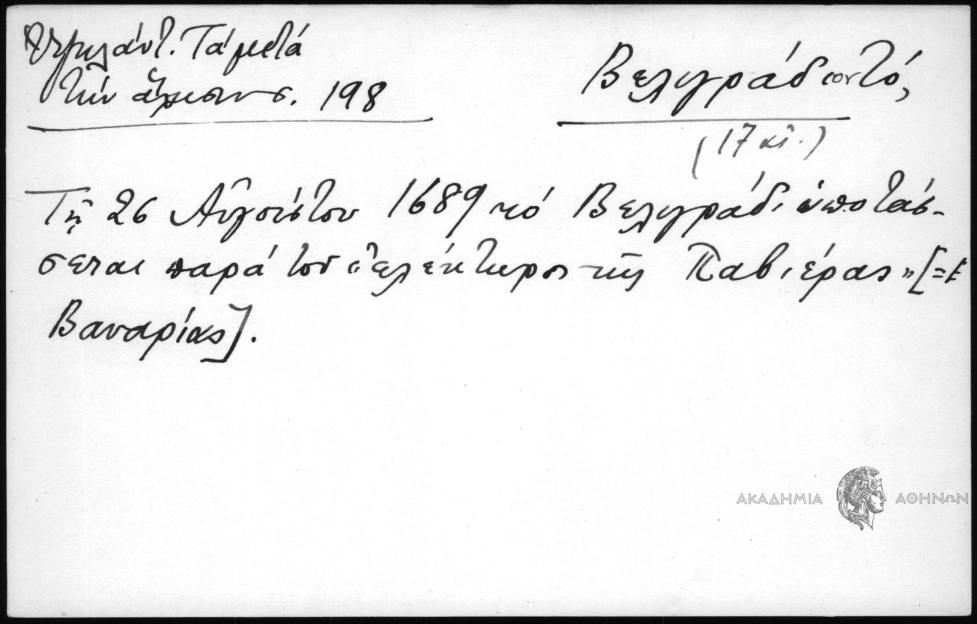 Ὑψηλάντ. Τά μετά
τήν ἅλωσιν. 198
Βελιγράδιον τό,
(17 αἰ.)
Τῇ 26 Αὐγούστου 1689 τό Βελιγράδι ὑποτάσ-
σεται παρά τοῦ «ἐλέκτωρος τῆς Παβιέρας» [=
Βαυαρίας].
ΑΚΑΔΗΜΙΑ ΑΘΗΝΩΝ